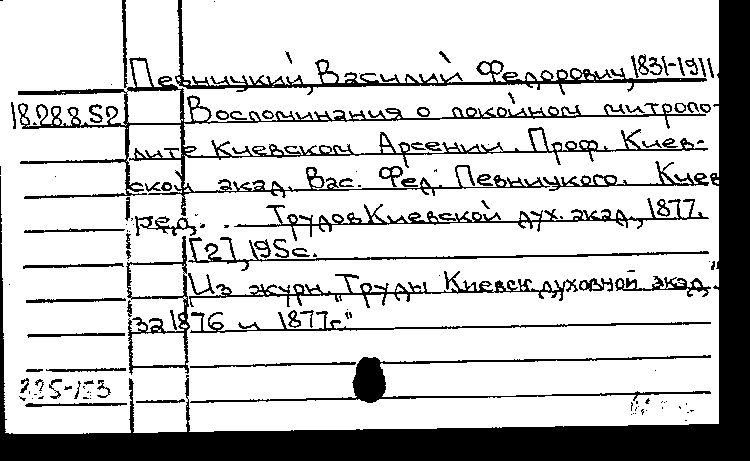 Певницкий, Василий Федорович, 1831-1911.
18.28.8.52 Воспоминания о покойном митропо-
лите Киевском Арсении. Проф. Киев-
ской акад. Вас. Фед. Певницкого. Киев
ред. ... Трудов Киевской дух. акад., 1877.
[2], 195с.
Из журн. "Труды Киевск. духовной акад."
за 1876 и 1877г."